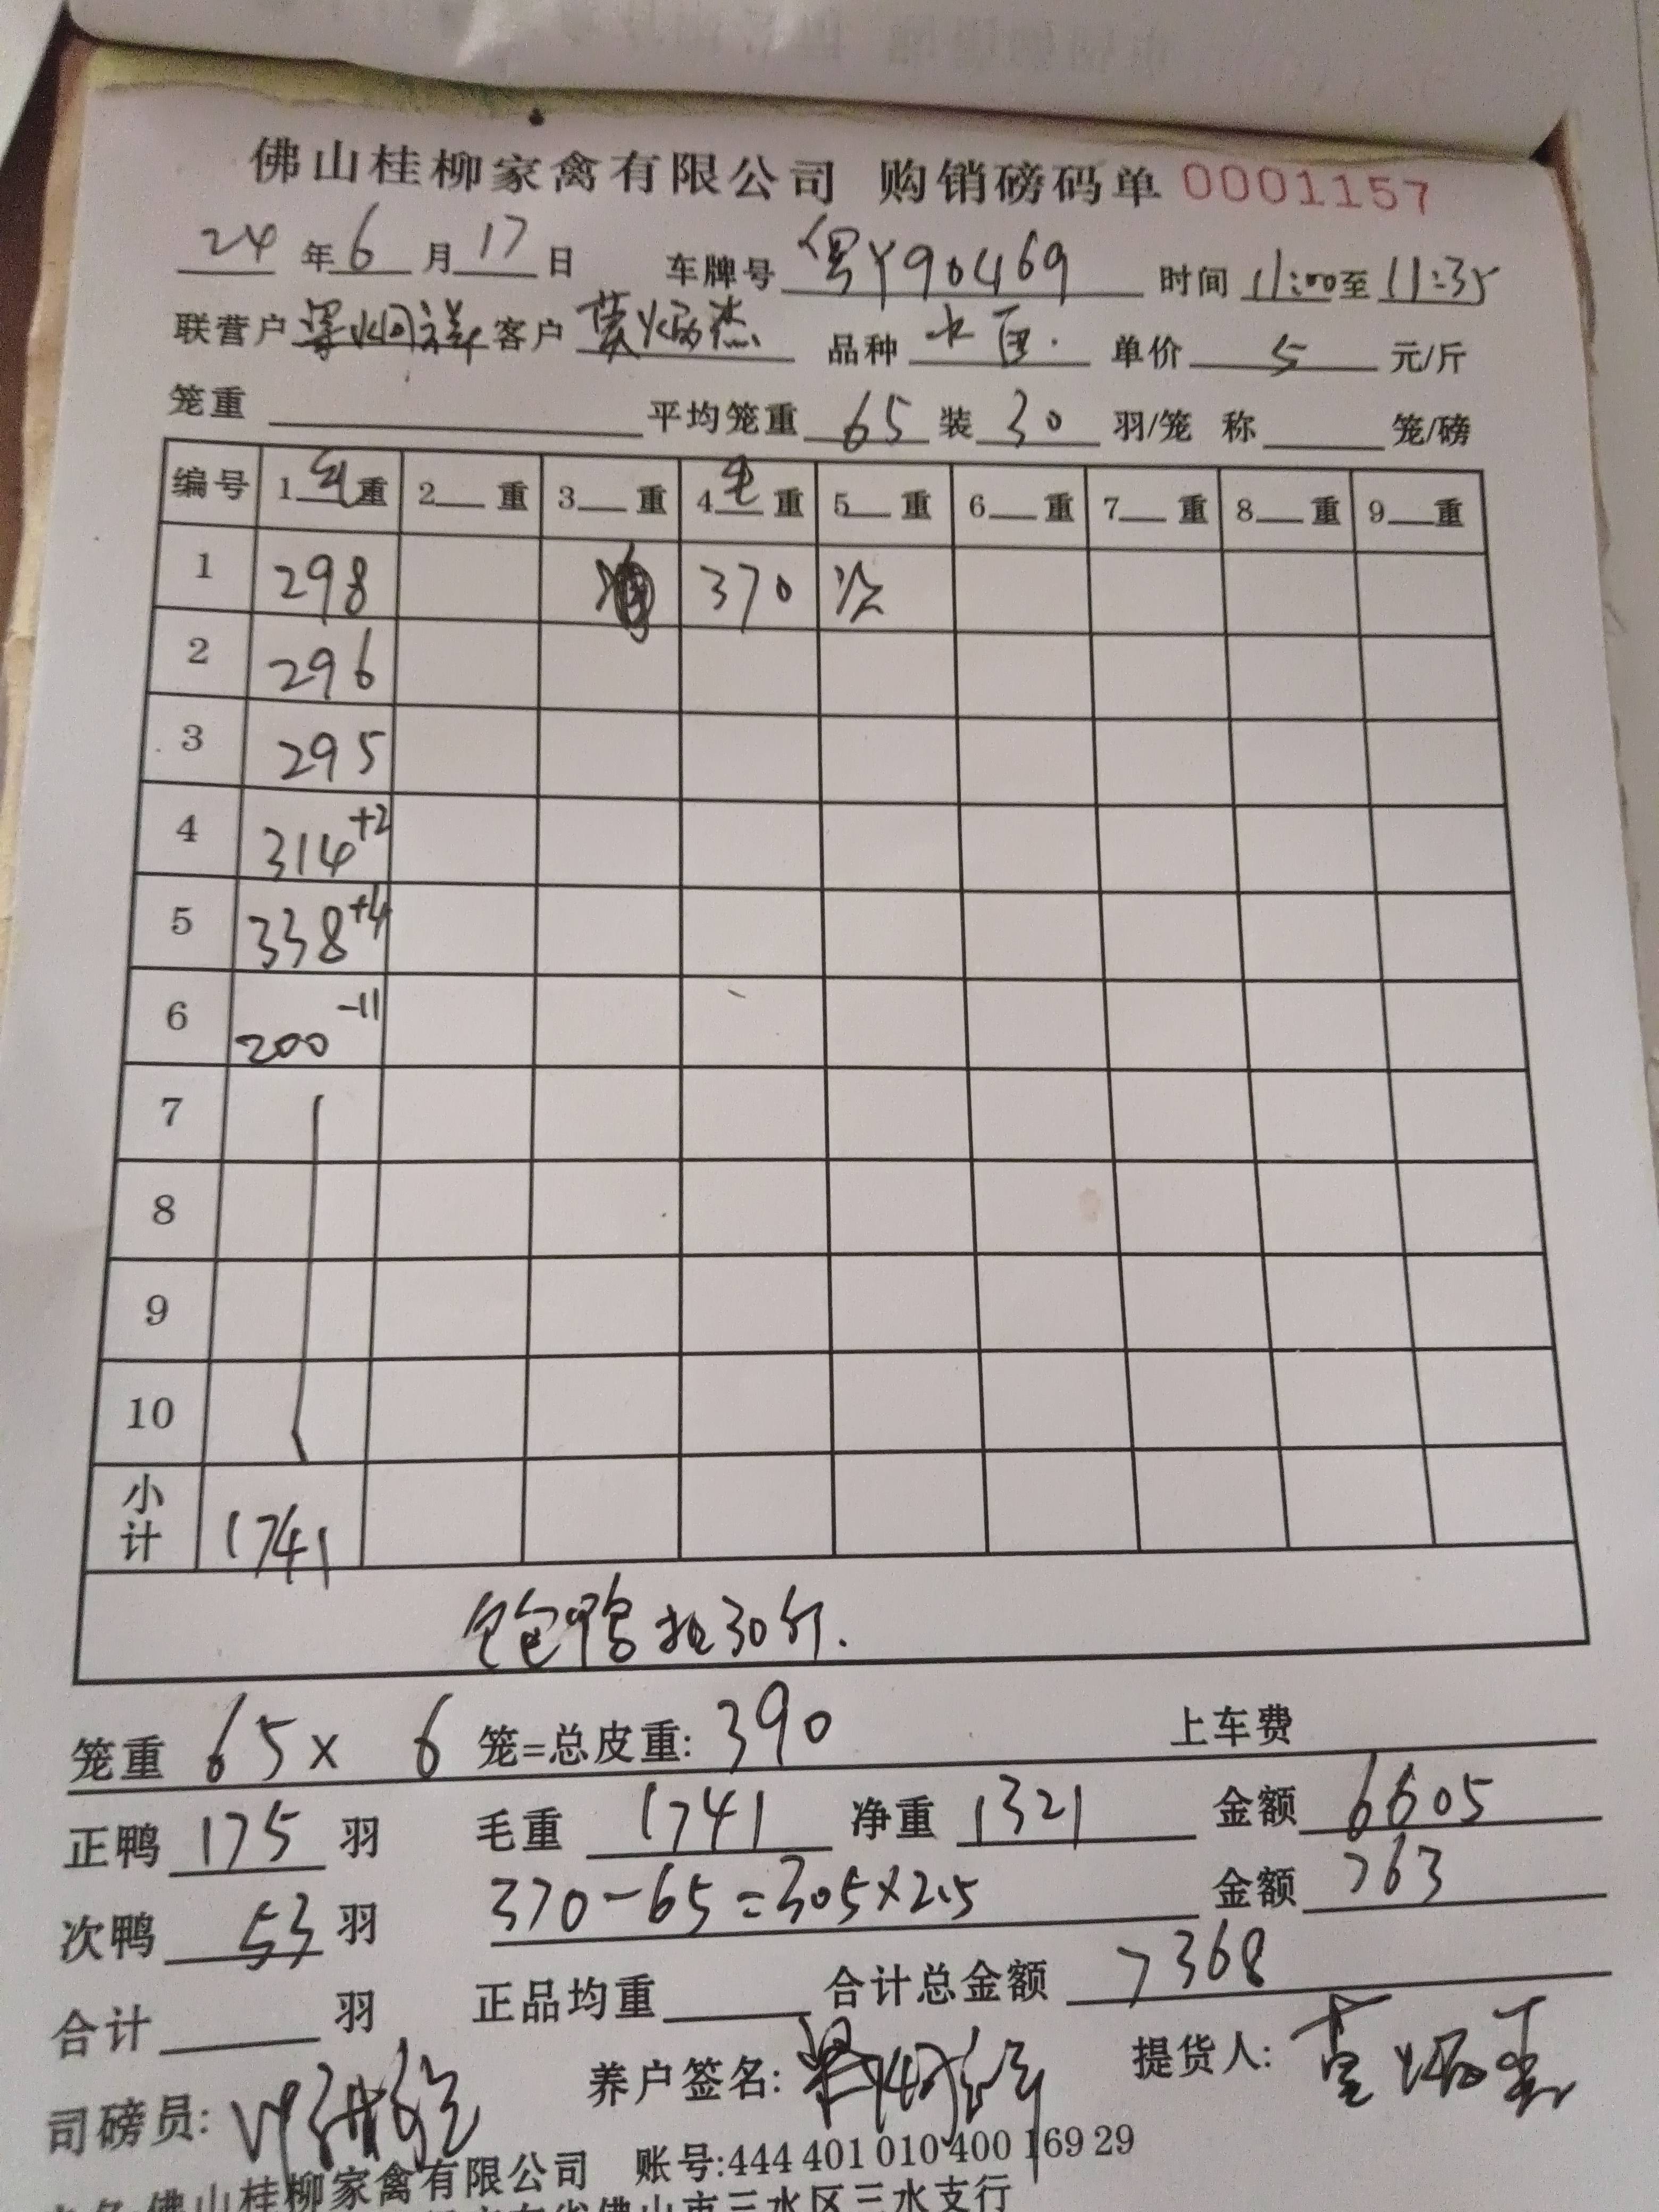 佛山桂柳家禽有限公司 购销磅码单 0001157
24 年 6 月 17 日 车牌号 粤Y90469 时间 11:00 至 11:35
联营户 客户 黄炳杰 品种 单价 5 元/斤
笼重 平均笼重 65 装 30 羽/笼 称 笼/磅
编号 1 毛 重 2 重 3 重 4 毛 重 5 重 6 重 7 重 8 重 9 重
1 298 370 次
2 296
3 295
4 314 +2
5 338 +4
6 200 -11
7
8
9
10
小计 1741
鸭 30斤.
笼重 65 x 6 笼=总皮重: 390 上车费
正鸭 175 羽 毛重 1741 净重 1321 金额 6605
次鸭 53 羽 370-65=305×2.5 金额 763
合计 羽 正品均重 合计总金额 7368
司磅员: 养户签名: 提货人: 黄炳杰
佛山桂柳家禽有限公司 账号:444 401 010 400 169 29
佛山市三水区三水支行